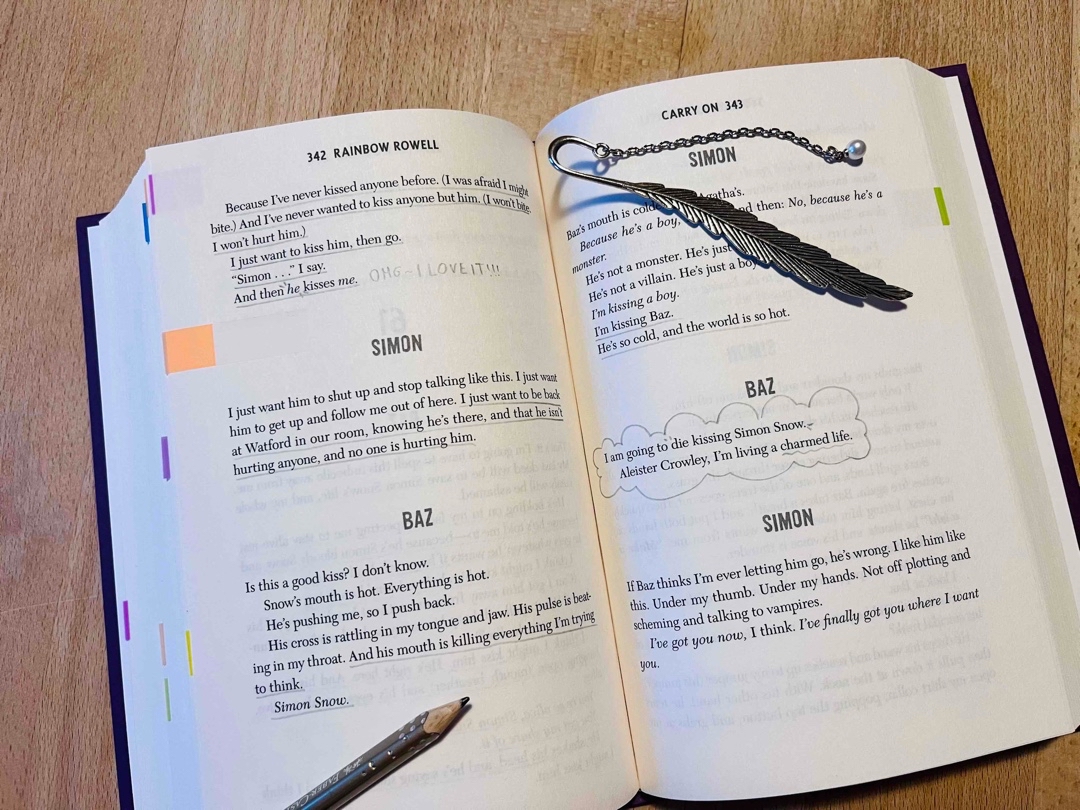 342 RAINBOW ROWELL
Because I've never kissed anyone before. (I was afraid I might
bite.) And I've never wanted to kiss anyone but him. (I won't bite.
I won't hurt him.)
I just want to kiss him, then go.
"Simon . . ." I say.
And then he kisses me. OMG - I LOVE IT!!!
SIMON
I just want him to shut up and stop talking like this. I just want
him to get up and follow me out of here. I just want to be back
at Watford in our room, knowing he's there, and that he isn't
hurting anyone, and no one is hurting him.
BAZ
Is this a good kiss? I don't know.
Snow's mouth is hot. Everything is hot.
He's pushing me, so I push back.
His cross is rattling in my tongue and jaw. His pulse is beat-
ing in my throat. And his mouth is killing everything I'm trying
to think.
Simon Snow.
CARRY ON 343
SIMON
Baz's mouth is Agatha's.
Because he's a boy, then: No, because he's a
monster.
He's not a monster. He's just
He's not a villain. He's just a
I'm kissing a boy.
I'm kissing Baz.
He's so cold, and the world is so hot.
BAZ
I am going to die kissing Simon Snow.
Aleister Crowley, I'm living a charmed life.
SIMON
If Baz thinks I'm ever letting him go, he's wrong. I like him like
this. Under my thumb. Under my hands. Not off plotting and
scheming and talking to vampires.
I've got you now, I think. I've finally got you where I want
you.